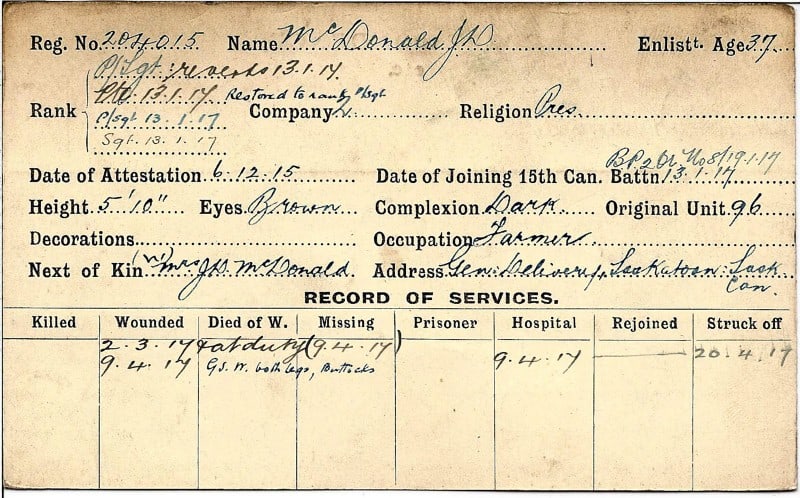 Reg. No. 204015 Name McDonald JD Enlistt. Age 37
P/Sgt. reverts 13.1.17.
Pte 13.1.17 Restored to rank P/Sgt
Rank P/Sgt 13.1.17 Company 2 Religion Pres.
Sgt. 13.1.17
B.P. 2 Or. No 8/19.1.17
Date of Attestation 6.12.15 Date of Joining 15th Can. Battn 13.1.17
Height 5'10" Eyes Brown Complexion Dark Original Unit 96
Decorations Occupation Farmer
Next of Kin (W) Mrs JD McDonald. Address Gen. Delivery, Saskatoon. Sask
Can.
RECORD OF SERVICES.
Killed Wounded Died of W. Missing Prisoner Hospital Rejoined Struck off
2.3.17 + at duty (9.4.17) 9.4.17 20.4.17
9.4.17 G.S.W. both legs, Buttocks